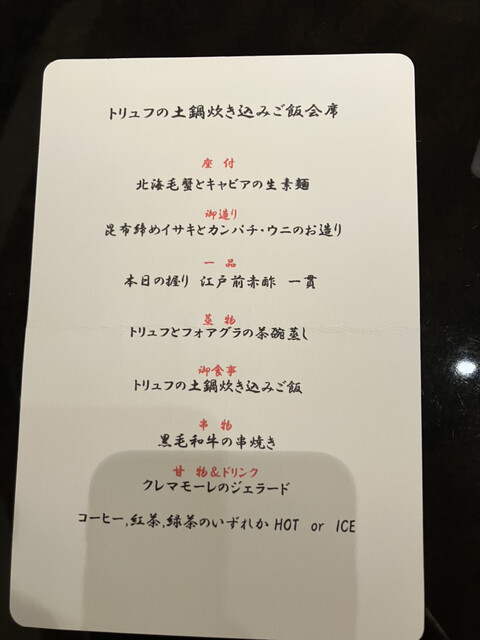 トリュフの土鍋炊き込みご飯会席
座 付
北海毛蟹とキャビアの生素麺
御造り
昆布締めイサキとカンパチ・ウニのお造り
一 品
本日の握り 江戸前赤酢 一貫
蒸 物
トリュフとフォアグラの茶碗蒸し
御食事
トリュフの土鍋炊き込みご飯
串 物
黒毛和牛の串焼き
甘 物&ドリンク
クレマモーレのジェラード
コーヒー,紅茶,緑茶のいずれか HOT or ICE